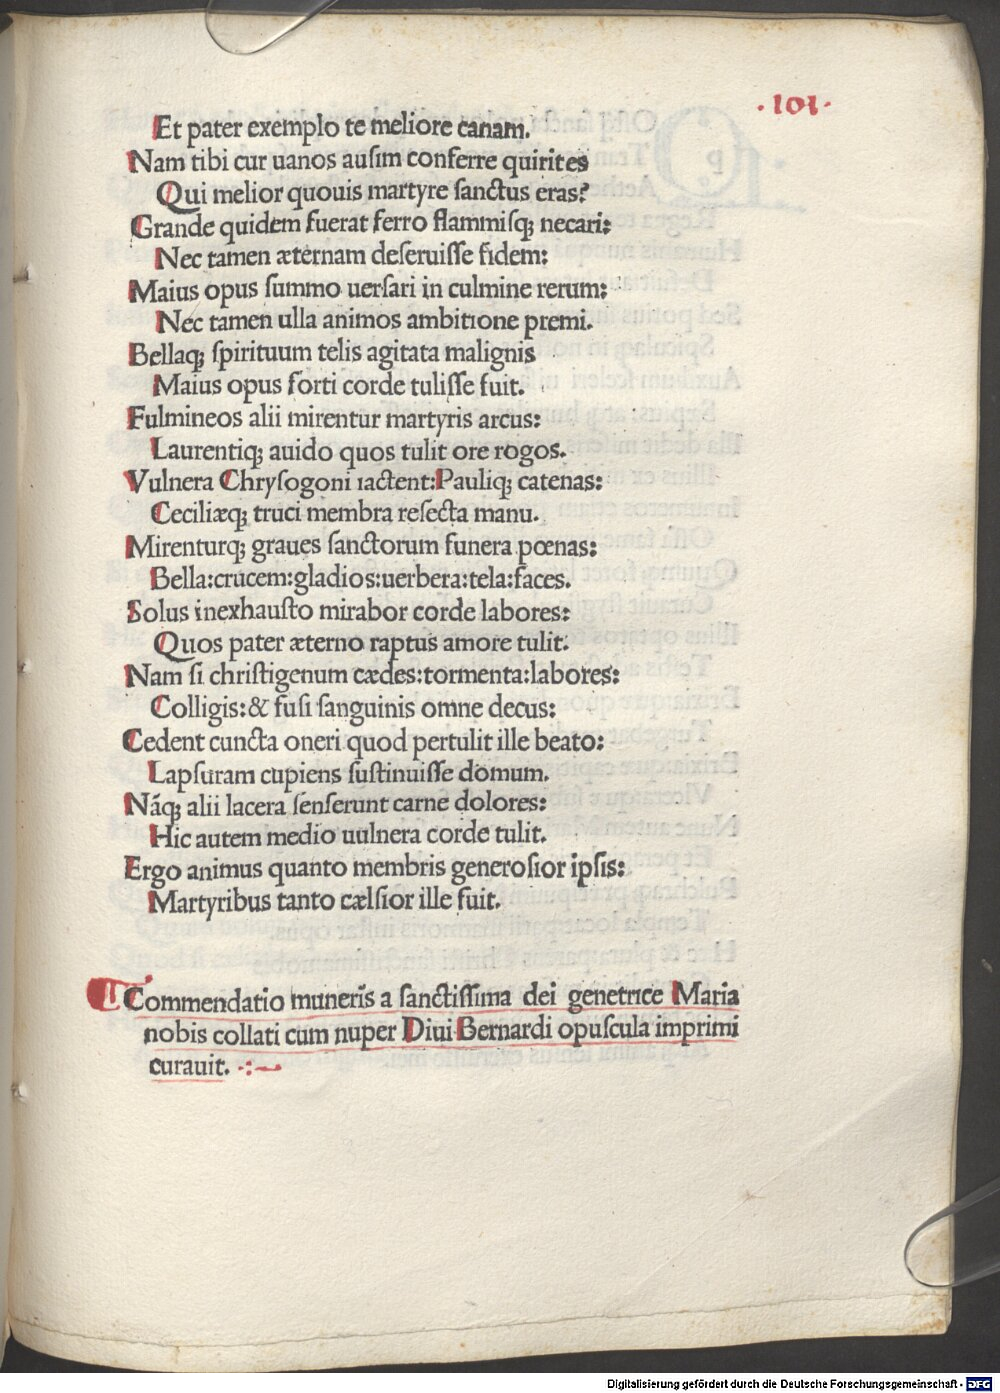 ·101·
Et pater exemplo te meliore canam.
Nam tibi cur uanos ausim conferre quirites
Qui melior quouis martyre sanctus eras?
Grande quidem fuerat ferro flammisq; necari:
Nec tamen æternam deseruisse fidem:
Maius opus summo uersari in culmine rerum:
Nec tamen ulla animos ambitione premi.
Bellaq; spirituum telis agitata malignis
Maius opus forti corde tulisse fuit.
Fulmineos alii mirentur martyris arcus:
Laurentiq; auido quos tulit ore rogos.
Vulnera Chrysogoni iactent: Pauliq; catenas:
Ceciliæq; truci membra resecta manu.
Mirenturq; graues sanctorum funera pœnas:
Bella:crucem:gladios:uerbera:tela:faces.
Solus inexhausto mirabor corde labores:
Quos pater æterno raptus amore tulit.
Nam si christigenum cædes:tormenta:labores:
Colligis:& fusi sanguinis omne decus:
Cedent cuncta oneri quod pertulit ille beato:
Lapsuram cupiens sustinuisse domum.
Nãq; alii lacera senserunt carne dolores:
Hic autem medio uulnera corde tulit.
Ergo animus quanto membris generosior ipsis:
Martyribus tanto cælsior ille fuit.
Commendatio muneris a sanctissima dei genetrice Maria
nobis collati cum nuper Diui Bernardi opuscula imprimi
curauit.
Digitalisierung gefördert durch die Deutsche Forschungsgemeinschaft - DFG